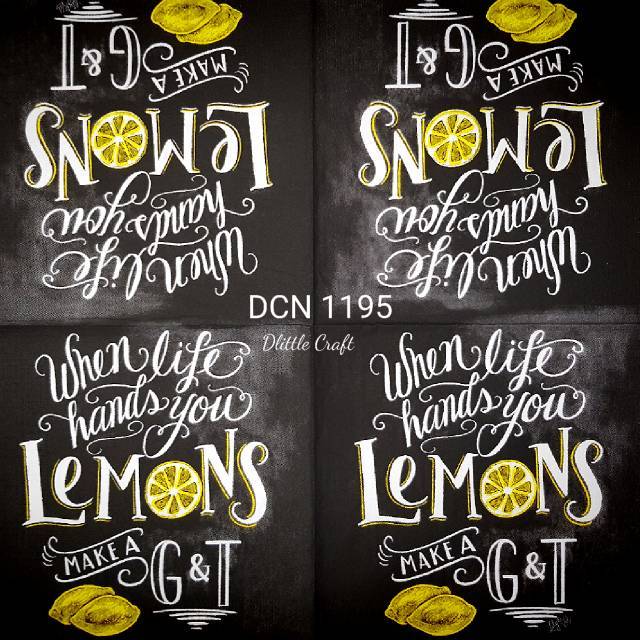 G&T
MAKE A
LEMONS
hands you
When life
G&T
MAKE A
LEMONS
hands you
When life
DCN 1195
Dlittle Craft
When life
hands you
LEMONS
MAKE A
G&T
When life
hands you
LEMONS
MAKE A
G&T